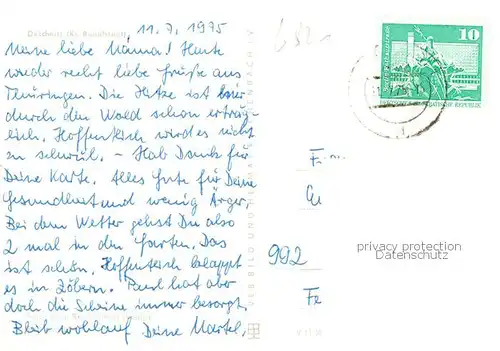 11.7.1975
Meine liebe Mama! Heute
wieder recht liebe Grüße aus
Thüringen. Die Hitze ist hier
durch den Wald schon erträg-
lich. Hoffentlich wird es nicht
zu schwül. – Hab Dank für
Deine Karte. Alles Gute für Deine
Gesundheit und wenig Ärger.
Bei dem Wetter gehst Du also
2 mal in den Garten. Das
ist schön. Hoffentlich klappt
es in Zöbern. Paul hat aber
doch die Scheine immer besorgt.
Bleib wohlauf Deine Martel.
10
992
privacy protection
Datenschutz